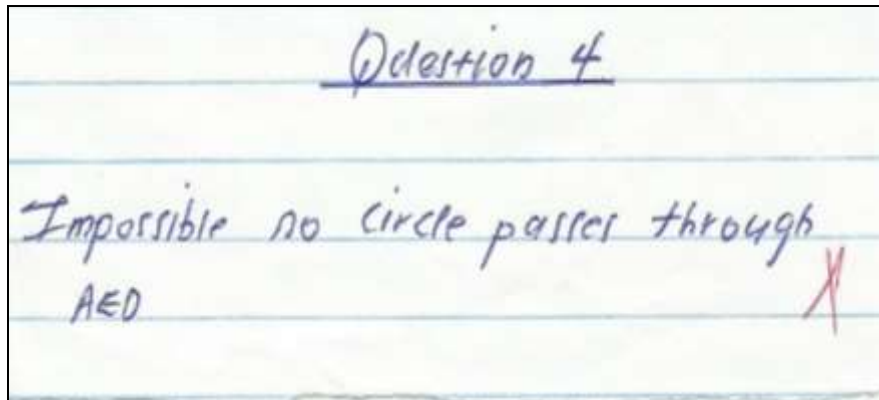 Question 4
Impossible no circle passes through
AED